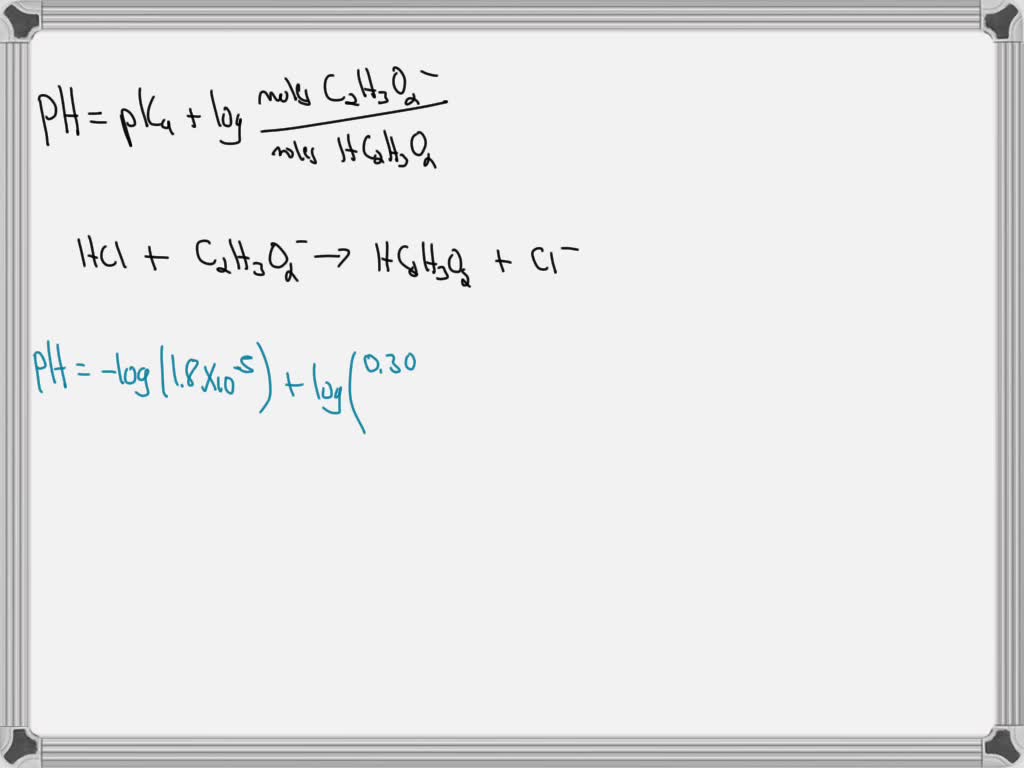 pH = pKa + log moles C₂H₃O₂⁻ / moles HC₂H₃O₂
HCl + C₂H₃O₂⁻ → HC₂H₃O₂ + Cl⁻
pH = -log(1.8×10⁻⁵) + log(0.30